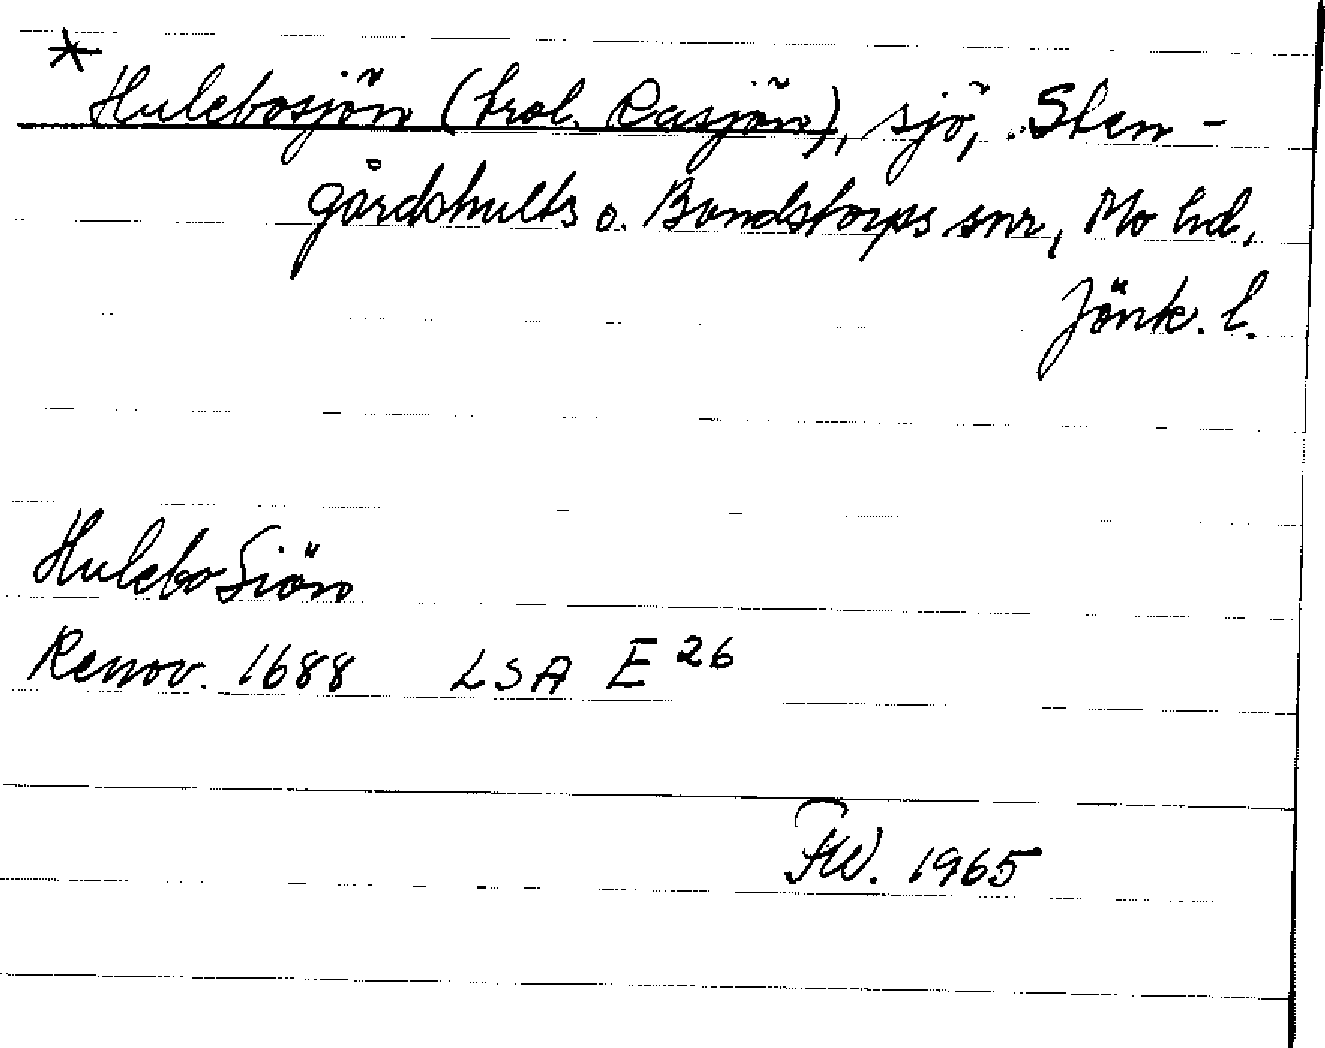 * Hulebosjön (trol. Rasjön), sjö, Sten-
gårdshults o. Bondstorps snr, Mo hd,
Jönk. l.
Hulebo Siön
Renov. 1688 LSA E 26
1965